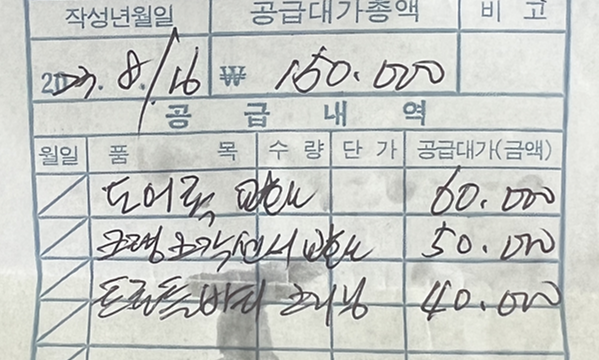 작성년월일 공급대가총액 비 고
2023. 8. 16 ₩ 150.000
공 급 내 역
월일 품 목 수 량 단 가 공급대가(금액)
도어록 교환 60.000
크랭크각센서 교환 50.000
드로틀바디 크리닝 40.000